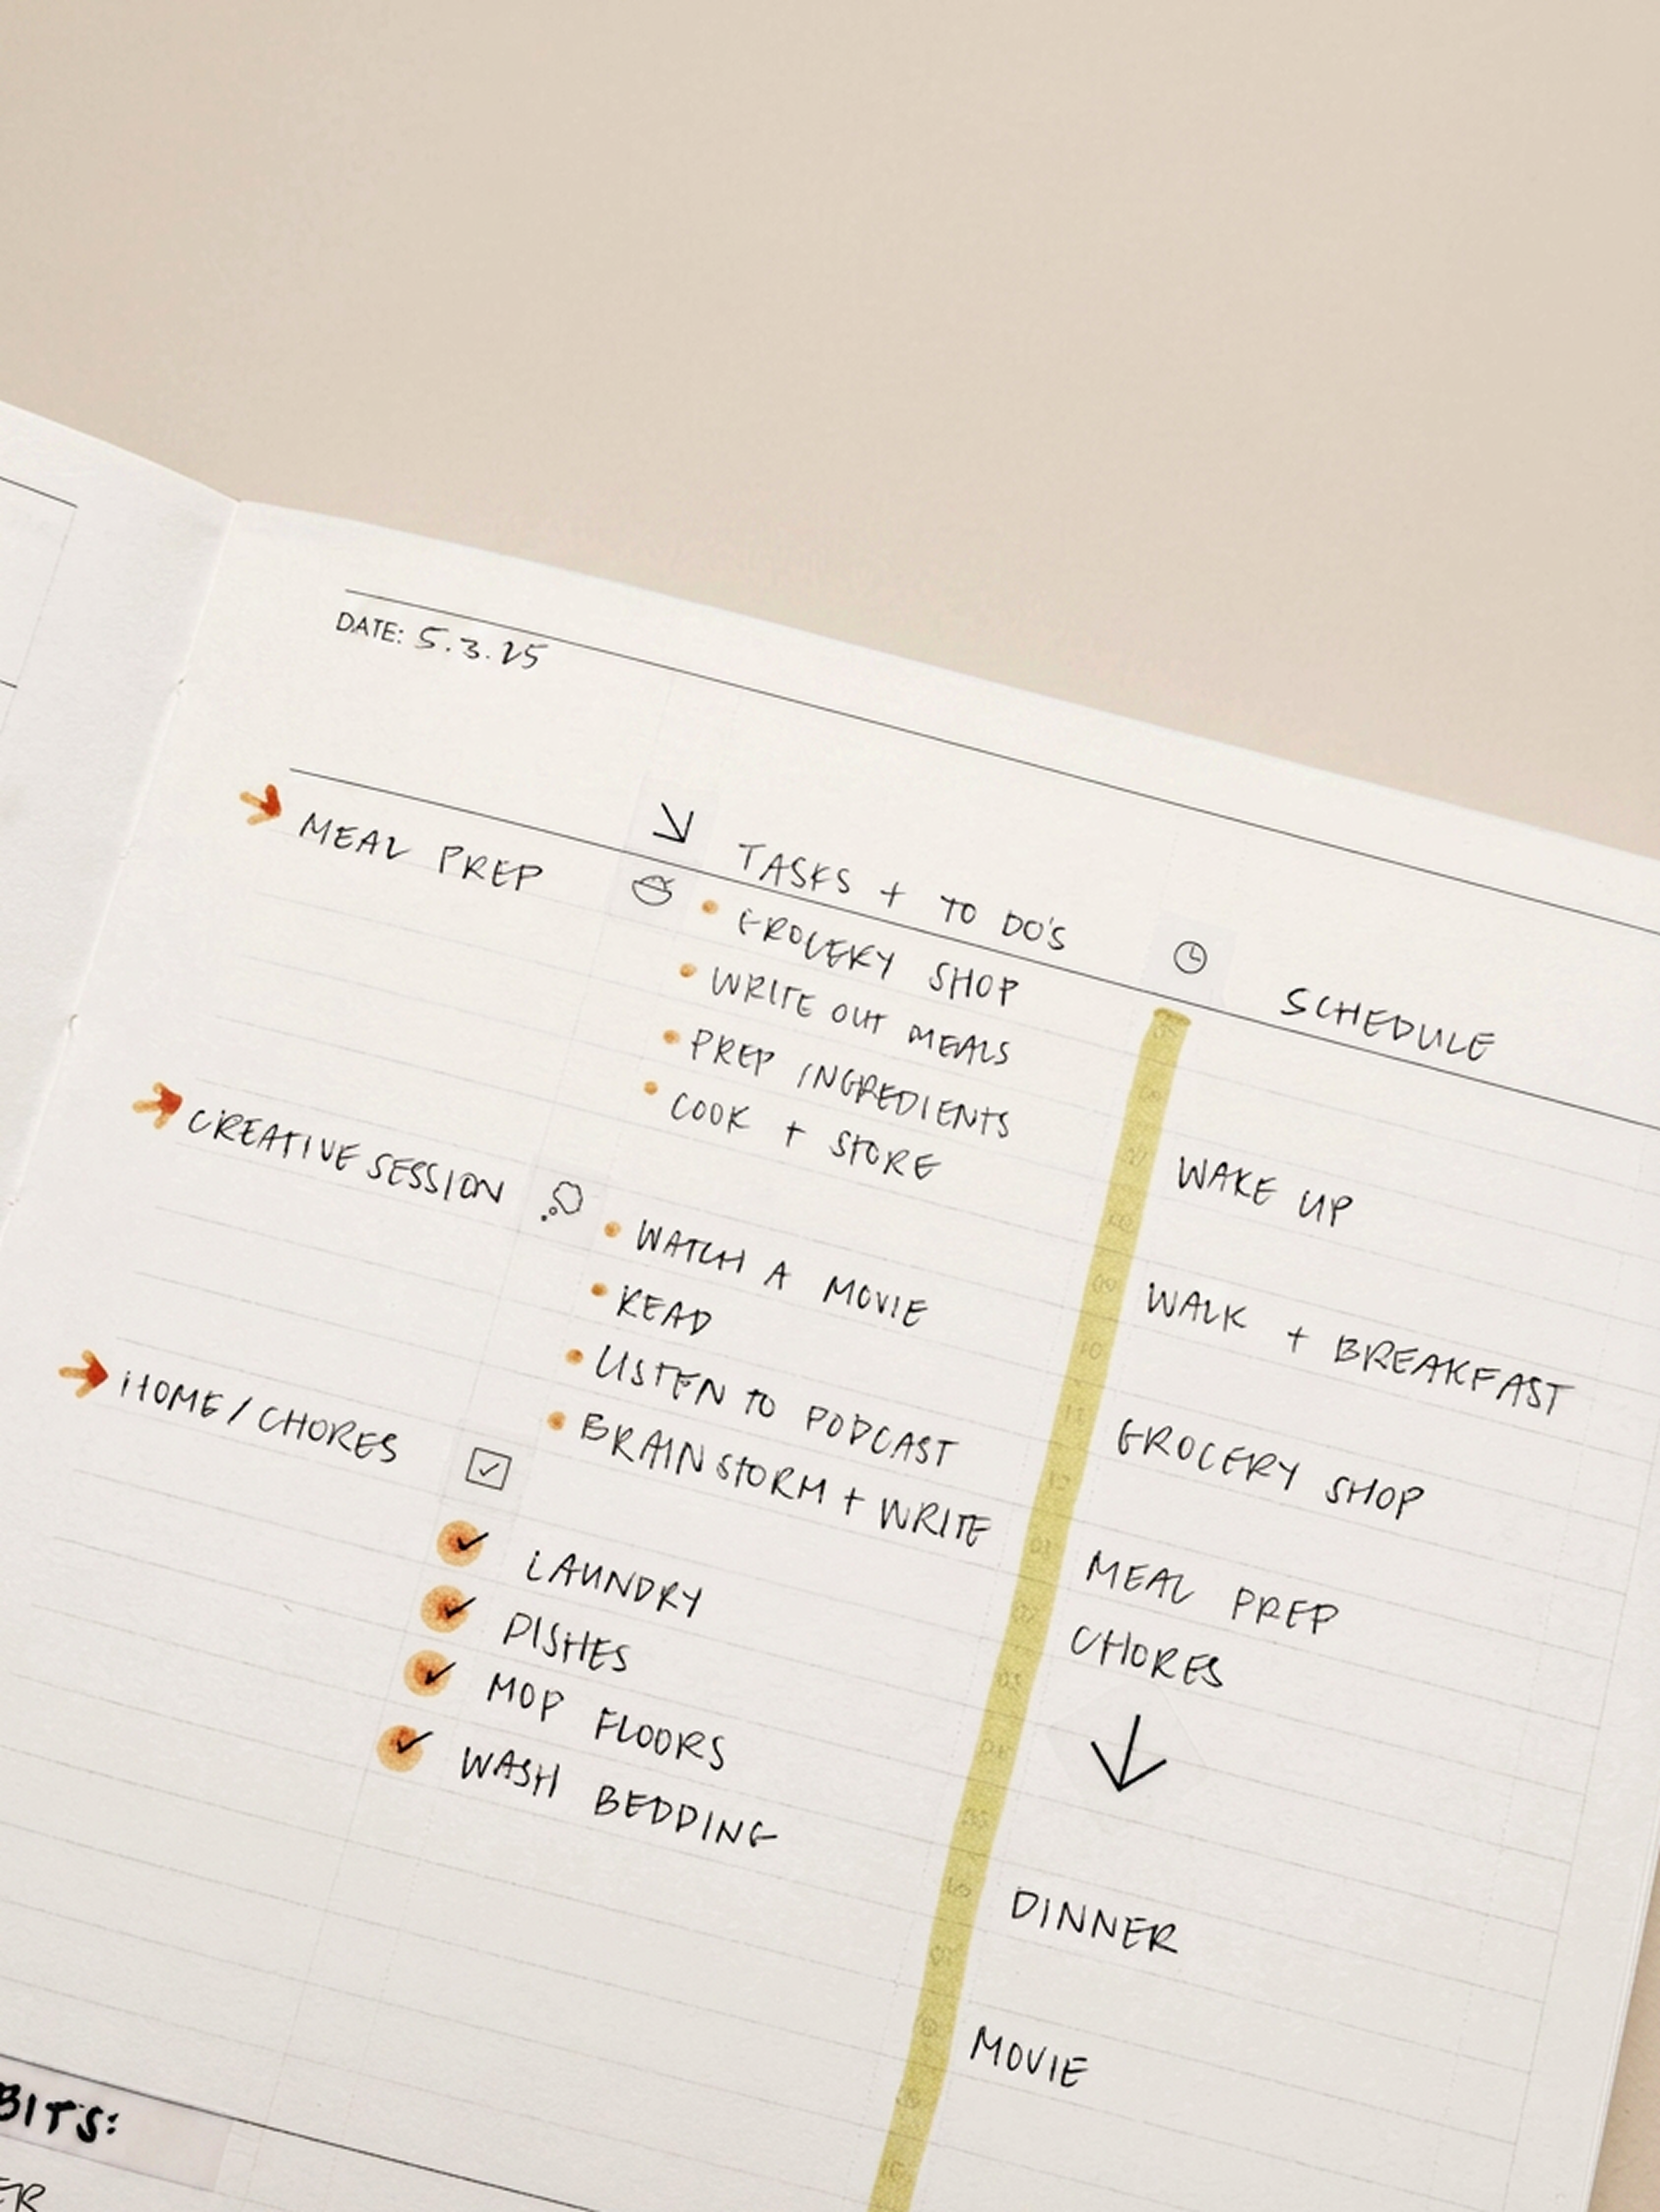 DATE: 5.3.25
TASKS + TO DO'S
SCHEDULE
MEAL PREP
GROCERY SHOP
WRITE OUT MEALS
PREP INGREDIENTS
COOK + STORE
CREATIVE SESSION
WATCH A MOVIE
READ
LISTEN TO PODCAST
BRAINSTORM + WRITE
HOME / CHORES
LAUNDRY
DISHES
MOP FLOORS
WASH BEDDING
WAKE UP
WALK + BREAKFAST
GROCERY SHOP
MEAL PREP
CHORES
DINNER
MOVIE
BITS:
ER